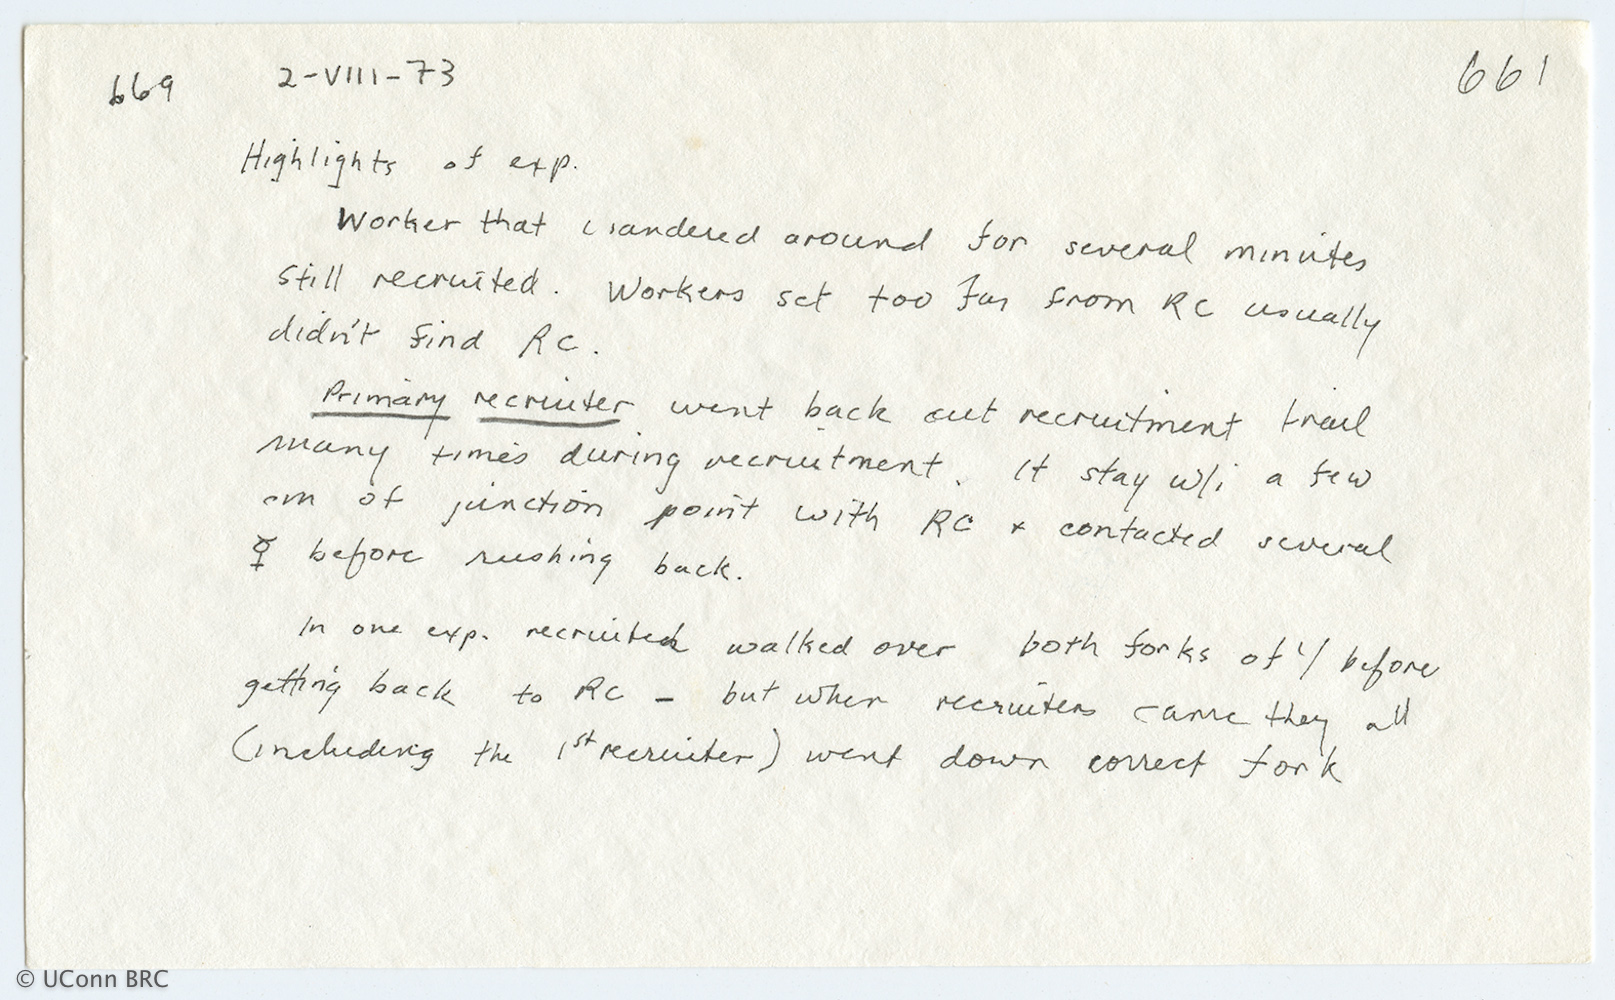 669 2-VIII-73 661
Highlights of exp.
Worker that wandered around for several minutes
still recruited. Workers set too far from RC usually
didn't find RC.
Primary recruiter went back out recruitment trail
many times during recruitment. It stay w/i a few
cm of junction point with RC & contacted several
☿ before rushing back.
In one exp. recruited walked over both forks of Y before
getting back to RC - but when recruiters came they all
(including the 1st recruiter) went down correct fork
© UConn BRC